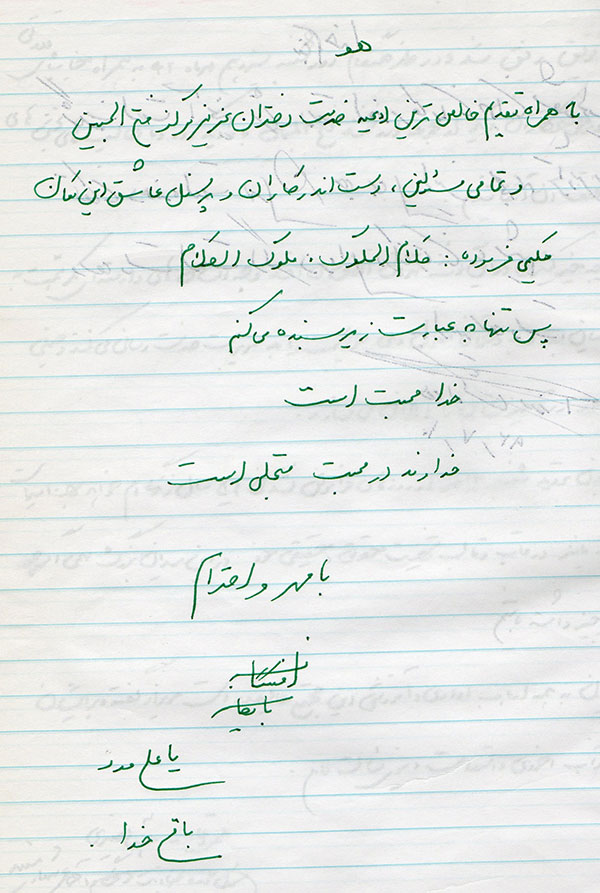 هو
به همراه تقدیم خالص ترین ادعیه خدمت دختران عزیز مرکز فتح المبین
و تمامی مسئولین، دست اندرکاران و پرسنل عاشق این مکان
حکیمی فرموده: کلام الملوک، ملوک الکلام
پس تنها به عبارت زیر بسنده می کنم
خدا محبت است
خداوند در محبت متجلی است
با مهر و احترام
یا علی مدد
خدا